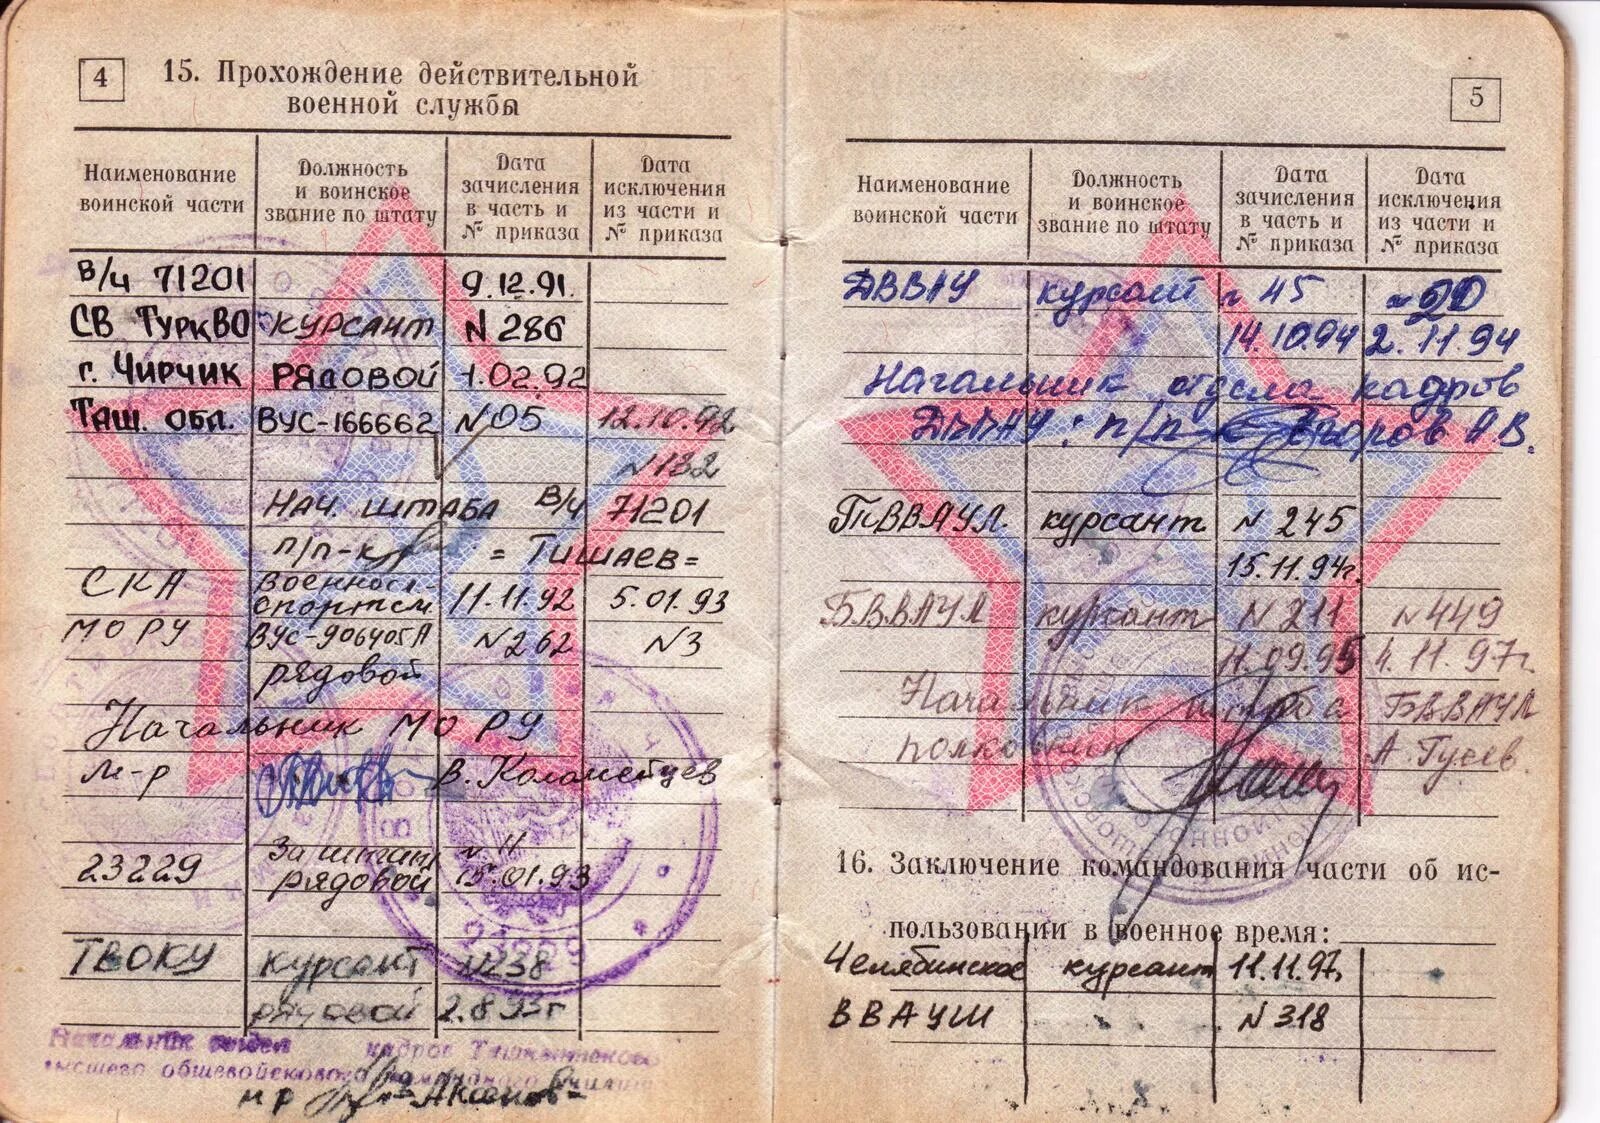 4
15. Прохождение действительной
военной службы
Наименование воинской части
Должность и воинское звание по штату
Дата зачисления в часть и № приказа
Дата исключения из части и № приказа
В/ч 71201 9.12.91.
СВ ТуркВО КУРСАНТ N 286
г. Чирчик РЯДОВОЙ 1.02.92
Таш. обл. ВУС-166662 N05 12.10.92
N182
НАЧ. ШТАБА В/Ч 71201
п/п-к =ТИШАЕВ=
СКА военносл.
спортсм. 11.11.92 5.01.93
МО РУ ВУС-906405А N262 N3
рядовой
Начальник МО РУ
М-р В. Коломейцев
За штат N 11
23229 рядовой 15.01.93
ТВОКУ курсант N238
рядовой 2.8.93г
Начальник отдела кадров Ташкентского
высшего общевойскового командного училища
м-р Аксенов
23229
5
Наименование воинской части
Должность и воинское звание по штату
Дата зачисления в часть и № приказа
Дата исключения из части и № приказа
ДВВАУ курсант N 45 N 20
14.10.94 2.11.94
Начальник отдела кадров
ДВВАУ: п/п Егоров А.В.
ТВВАУЛ курсант N 245
15.11.94г.
БВВАУЛ курсант N 211 N449
11.09.95 4.11.97г
Начальник штаба БВВАУЛ
полковник А. Гусев.
16. Заключение командования части об ис-
пользовании в военное время:
Челябинское курсант 11.11.97,
ВВАУШ N318